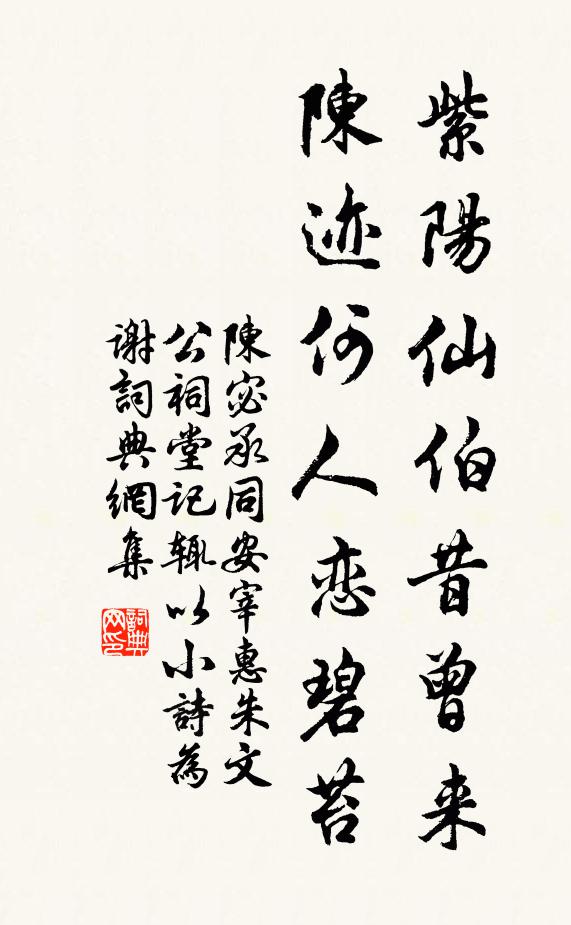 紫陽仙伯昔曾来
陳迹何人恋碧苔
陳宓承同安宰惠朱文
公祠堂记輒以小詩為
谢詞典網集
詞典
网印